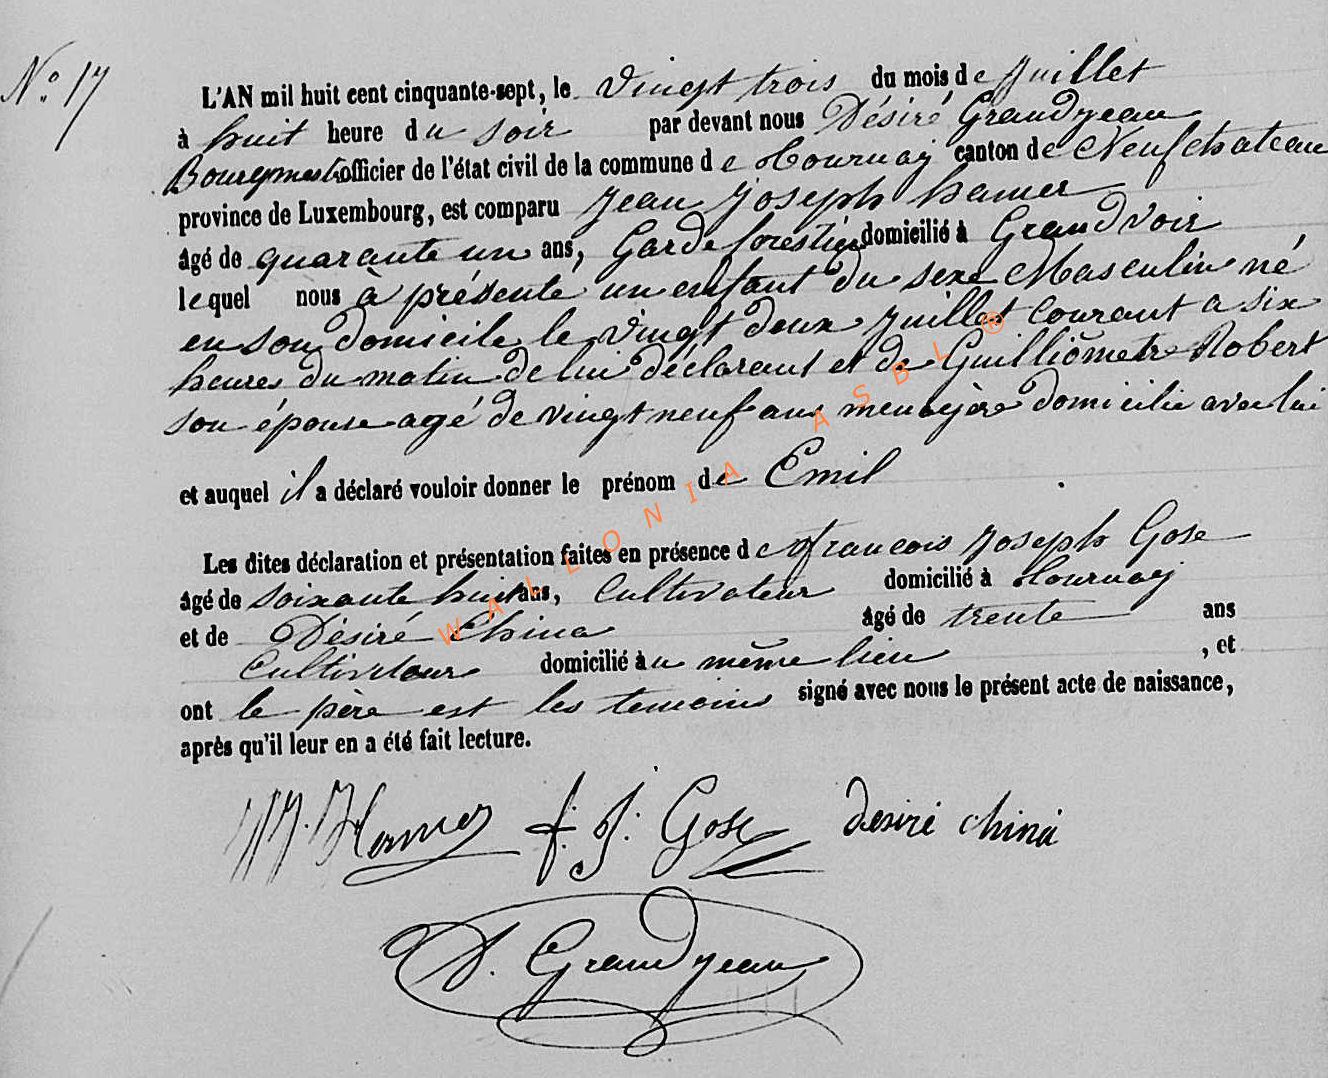 No. 17
L'AN mil huit cent cinquante-sept, le vingt trois du mois de Juillet
à huit heure du soir par devant nous Désiré Grandjean
Bourgmestre officier de l'état civil de la commune de Tournay canton de Neufchateau
province de Luxembourg, est comparu Jean Joseph hamer
âgé de quarante un ans, Garde forestier domicilié à Grandvoir
lequel nous à présenté un enfant du sexe Masculin né
en son domicile le vingt deux Juillet courant a six
heures du matin de lui déclarant et de Guilliômetre Robert
son épouse agé de vingt neuf ans menagère domicilie avec lui
et auquel il a déclaré vouloir donner le prénom de Emil
Les dites déclaration et présentation faites en présence de francois Joseph Gose
âgé de soixante huit ans, Cultivateur domicilié à Tournay
et de Désiré China âgé de trente ans
Cultivteur domicilié àu même lieu , et
ont le père est les temoins signé avec nous le présent acte de naissance,
après qu'il leur en a été fait lecture.
J. Hamer f. J. Gose desiré china
D. Grandjean
WALLONIA ASBL ®